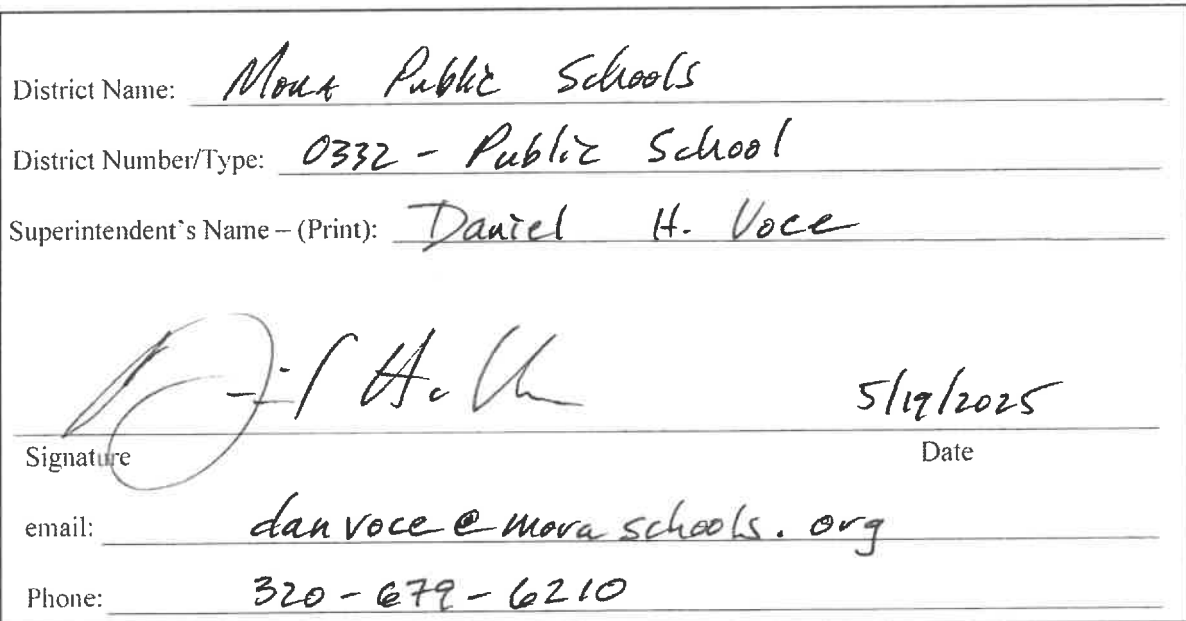 District Name: Mora Public Schools
District Number/Type: 0332 - Public School
Superintendent's Name – (Print): Daniel H. Voce
5/19/2025
Signature Date
email: danvoce@moraschools.org
Phone: 320-679-6210